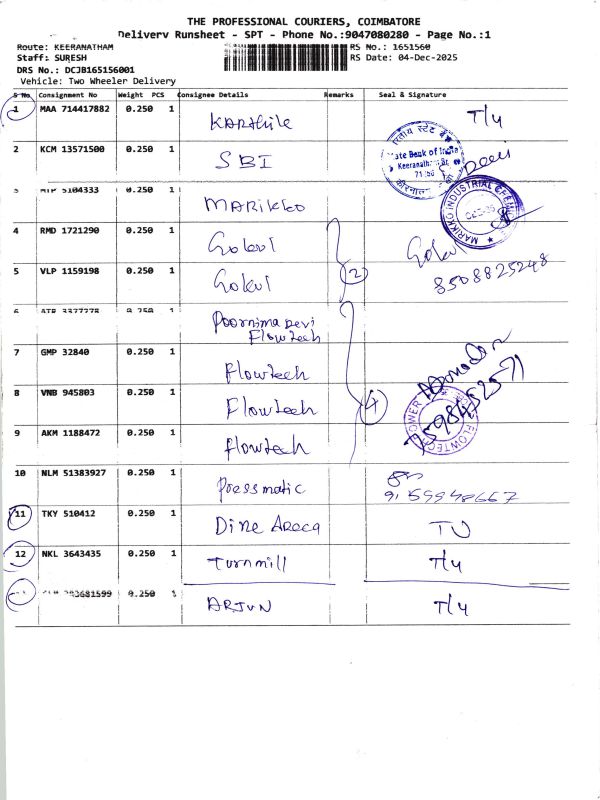 THE PROFESSIONAL COURIERS, COIMBATORE
Delivery Runsheet - SPT - Phone No.:9047080280 - Page No.:1
Route: KEERANATHAM
RS No.: 1651560
Staff: SURESH
RS Date: 04-Dec-2025
DRS No.: DCJB165156001
Vehicle: Two Wheeler Delivery
S No. Consignment No Weight PCS Consignee Details Remarks Seal & Signature
1 MAA 714417882 0.250 1 Karthik T/4
2 KCM 13571500 0.250 1 SBI State Bank of India Keeranatham
3 5104333 0.250 1 MARIKKO MARIKKO INDUSTRIAL
4 RMD 1721290 0.250 1 Gokul Gokul
5 VLP 1159198 0.250 1 Gokul 2 8508825248
6 0.250 1 Poornima Devi
Flowtech
7 GMP 32840 0.250 1 Flowtech
8 VNB 945803 0.250 1 Flowtech 4 FLOWTECH POWER
9 AKM 1188472 0.250 1 Flowtech
10 NLM 51383927 0.250 1 Pressmatic
11 TKY 510412 0.250 1 Dine Areca
12 NKL 3643435 0.250 1 Turnmill T/4
0.250 1 ARJUN T/4